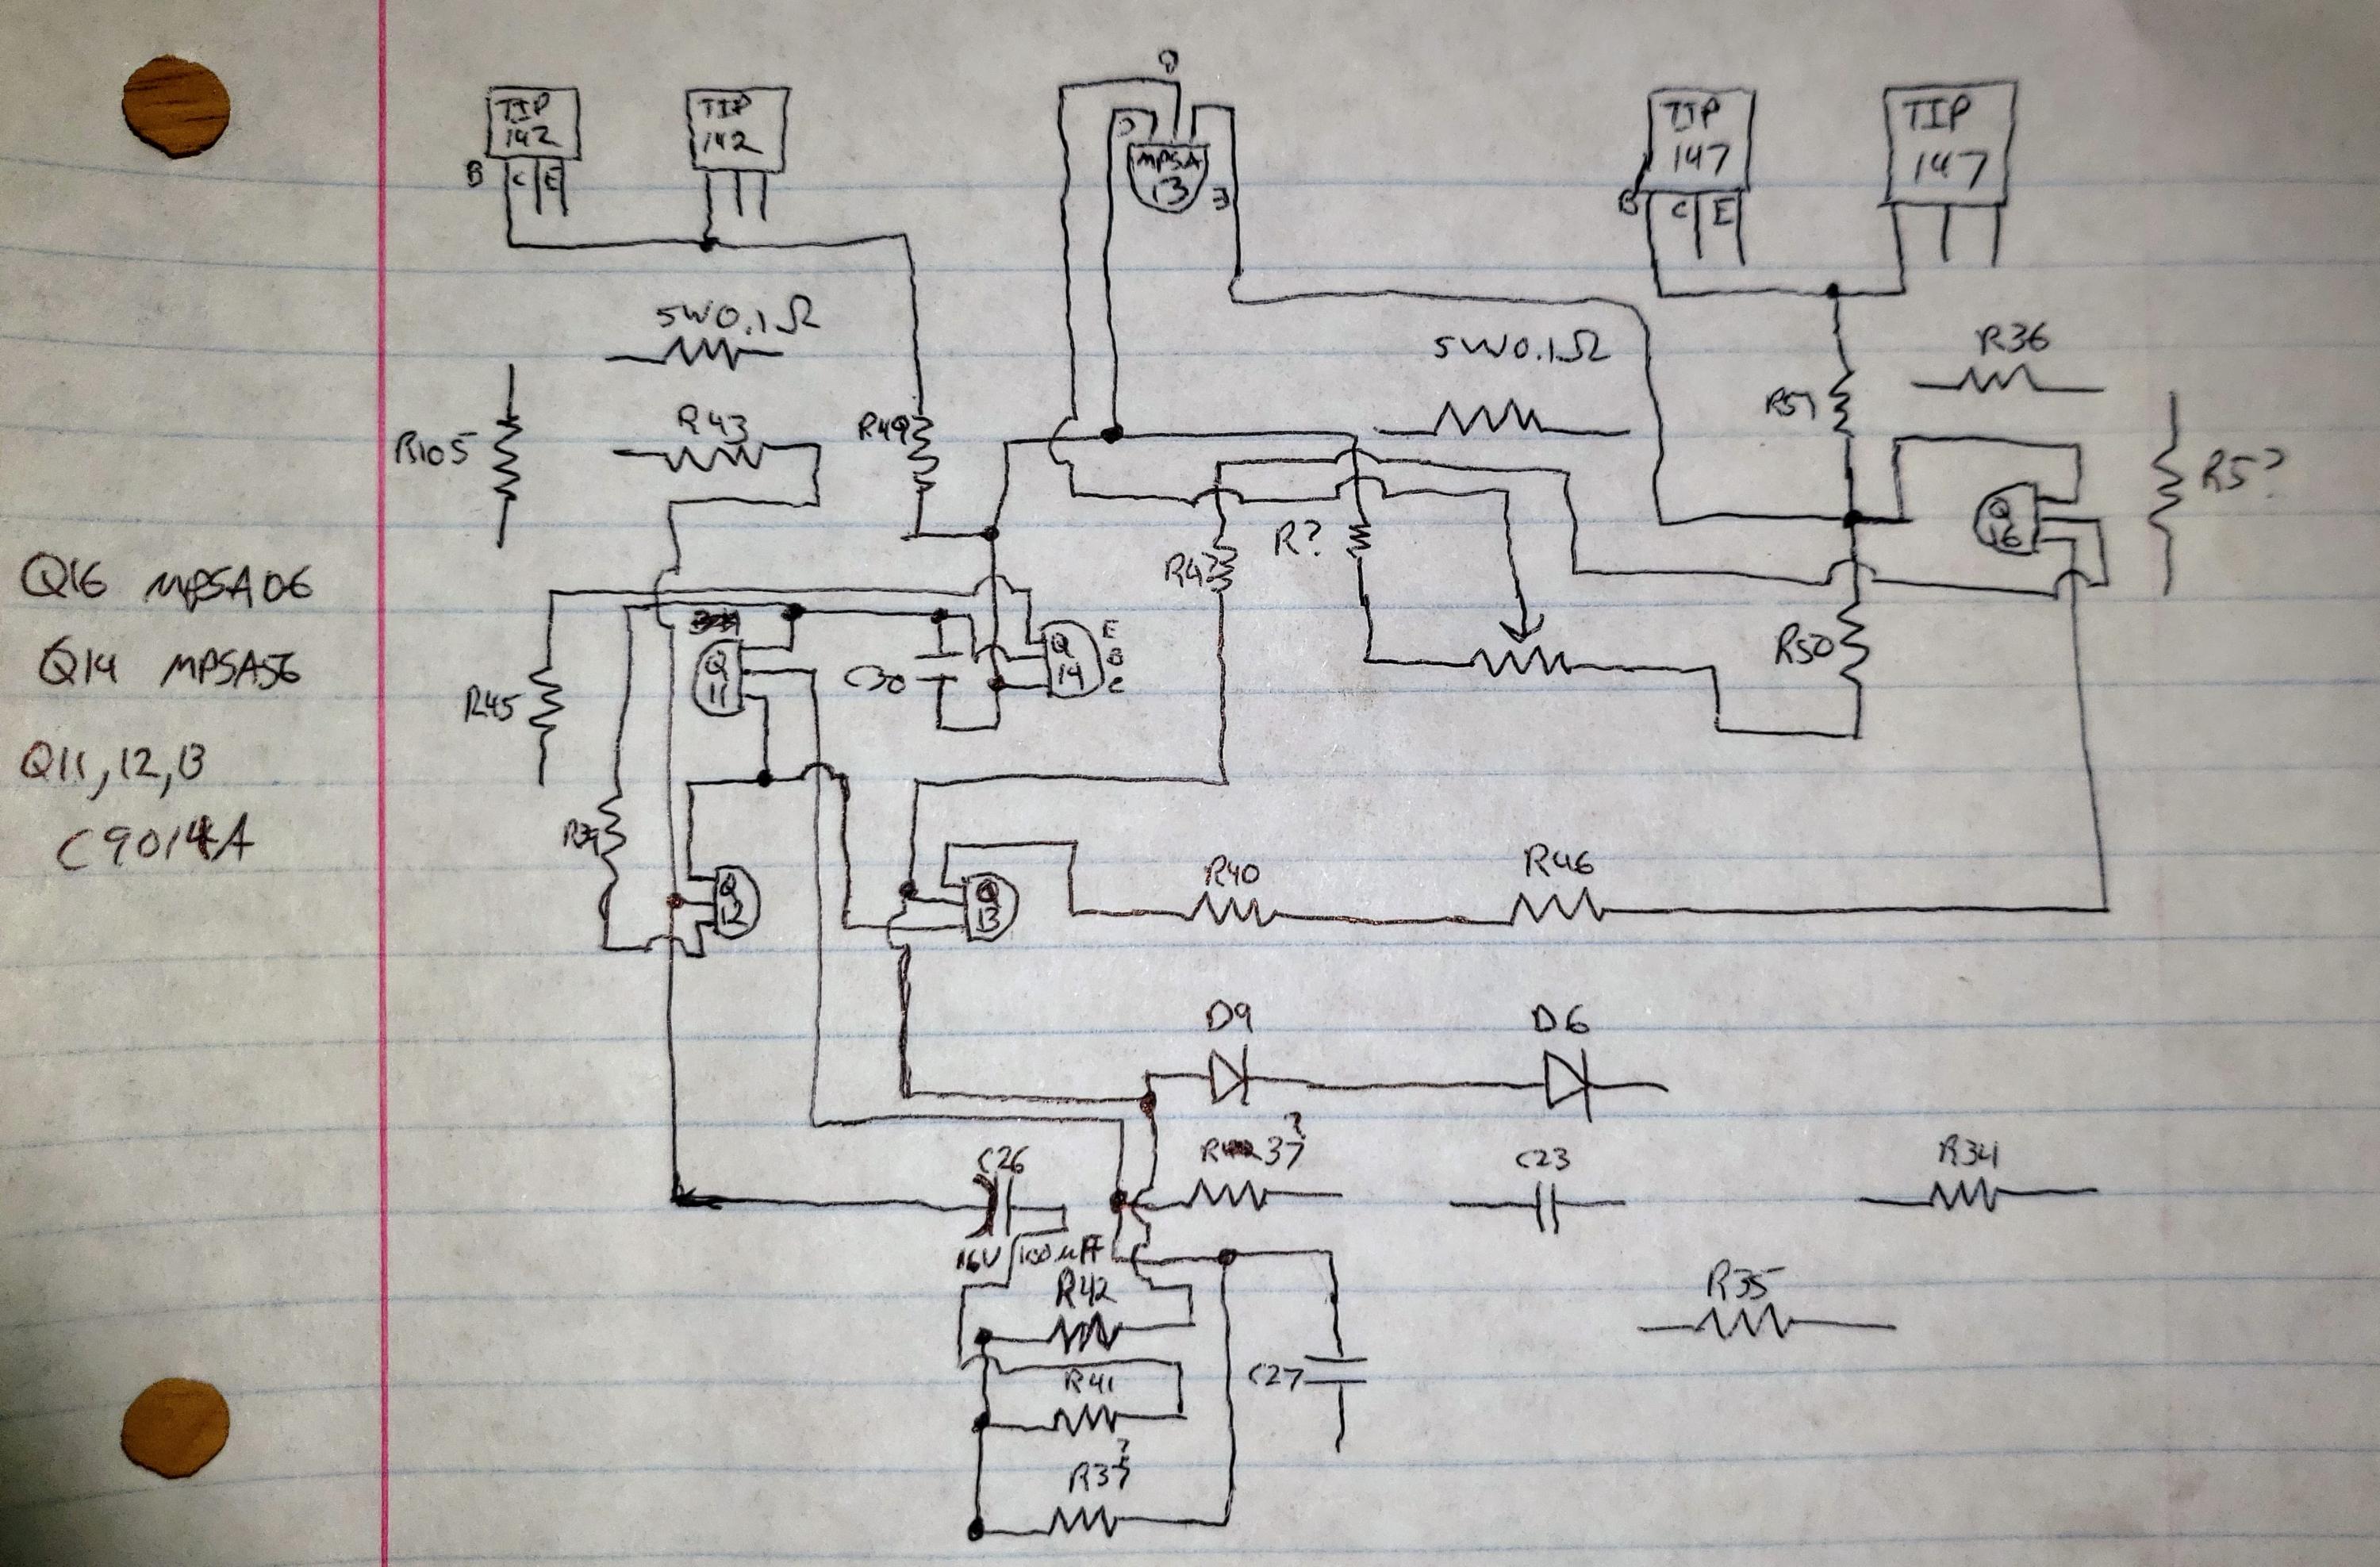 TIP
142
B C E
TIP
142
MPSA
13
TIP
147
B C E
TIP
147
5W0.1Ω
5W0.1Ω
R36
R51
R105
R43
R49
R5?
Q
16
R?
R4?
Q16 MPSA06
Q14 MPSA56
Q11,12,13
C9014A
Q
11
C30
Q
14
E
B
C
R50
R45
Q
12
Q
13
R40
R46
D9
D6
C26
16V 100uF
R37?
C23
R34
R42
R35
R41
C27
R3?